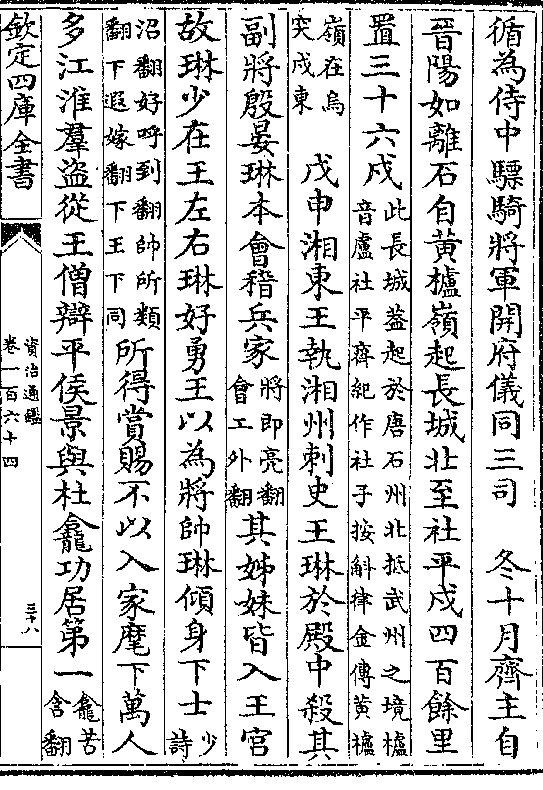 循為侍中驃騎將軍開府儀同三司　冬十月齊主自
晉陽如離石自黃櫨嶺起長城北至社平戍四百餘里
置三十六戍此長城葢起於唐石州北抵武州之境櫨
音盧社平齊紀作社于按斛律金傳黃櫨
嶺在烏
突戍東　戊申湘東王執湘州刺史王琳於殿中殺其
副將殷晏琳本會稽兵家將即亮翻
會工外翻其姊妹皆入王宮
故琳少在王左右琳好勇王以為將帥琳傾身下士少詩
沼翻好呼到翻帥所類
翻下遐嫁翻下王下同所得賞賜不以入家麾下萬人
多江淮羣盜從王僧辯平侯景與杜龕功居第一龕苦
含翻
欽定四庫全書
資治通鑑
卷一百六十四
三十八